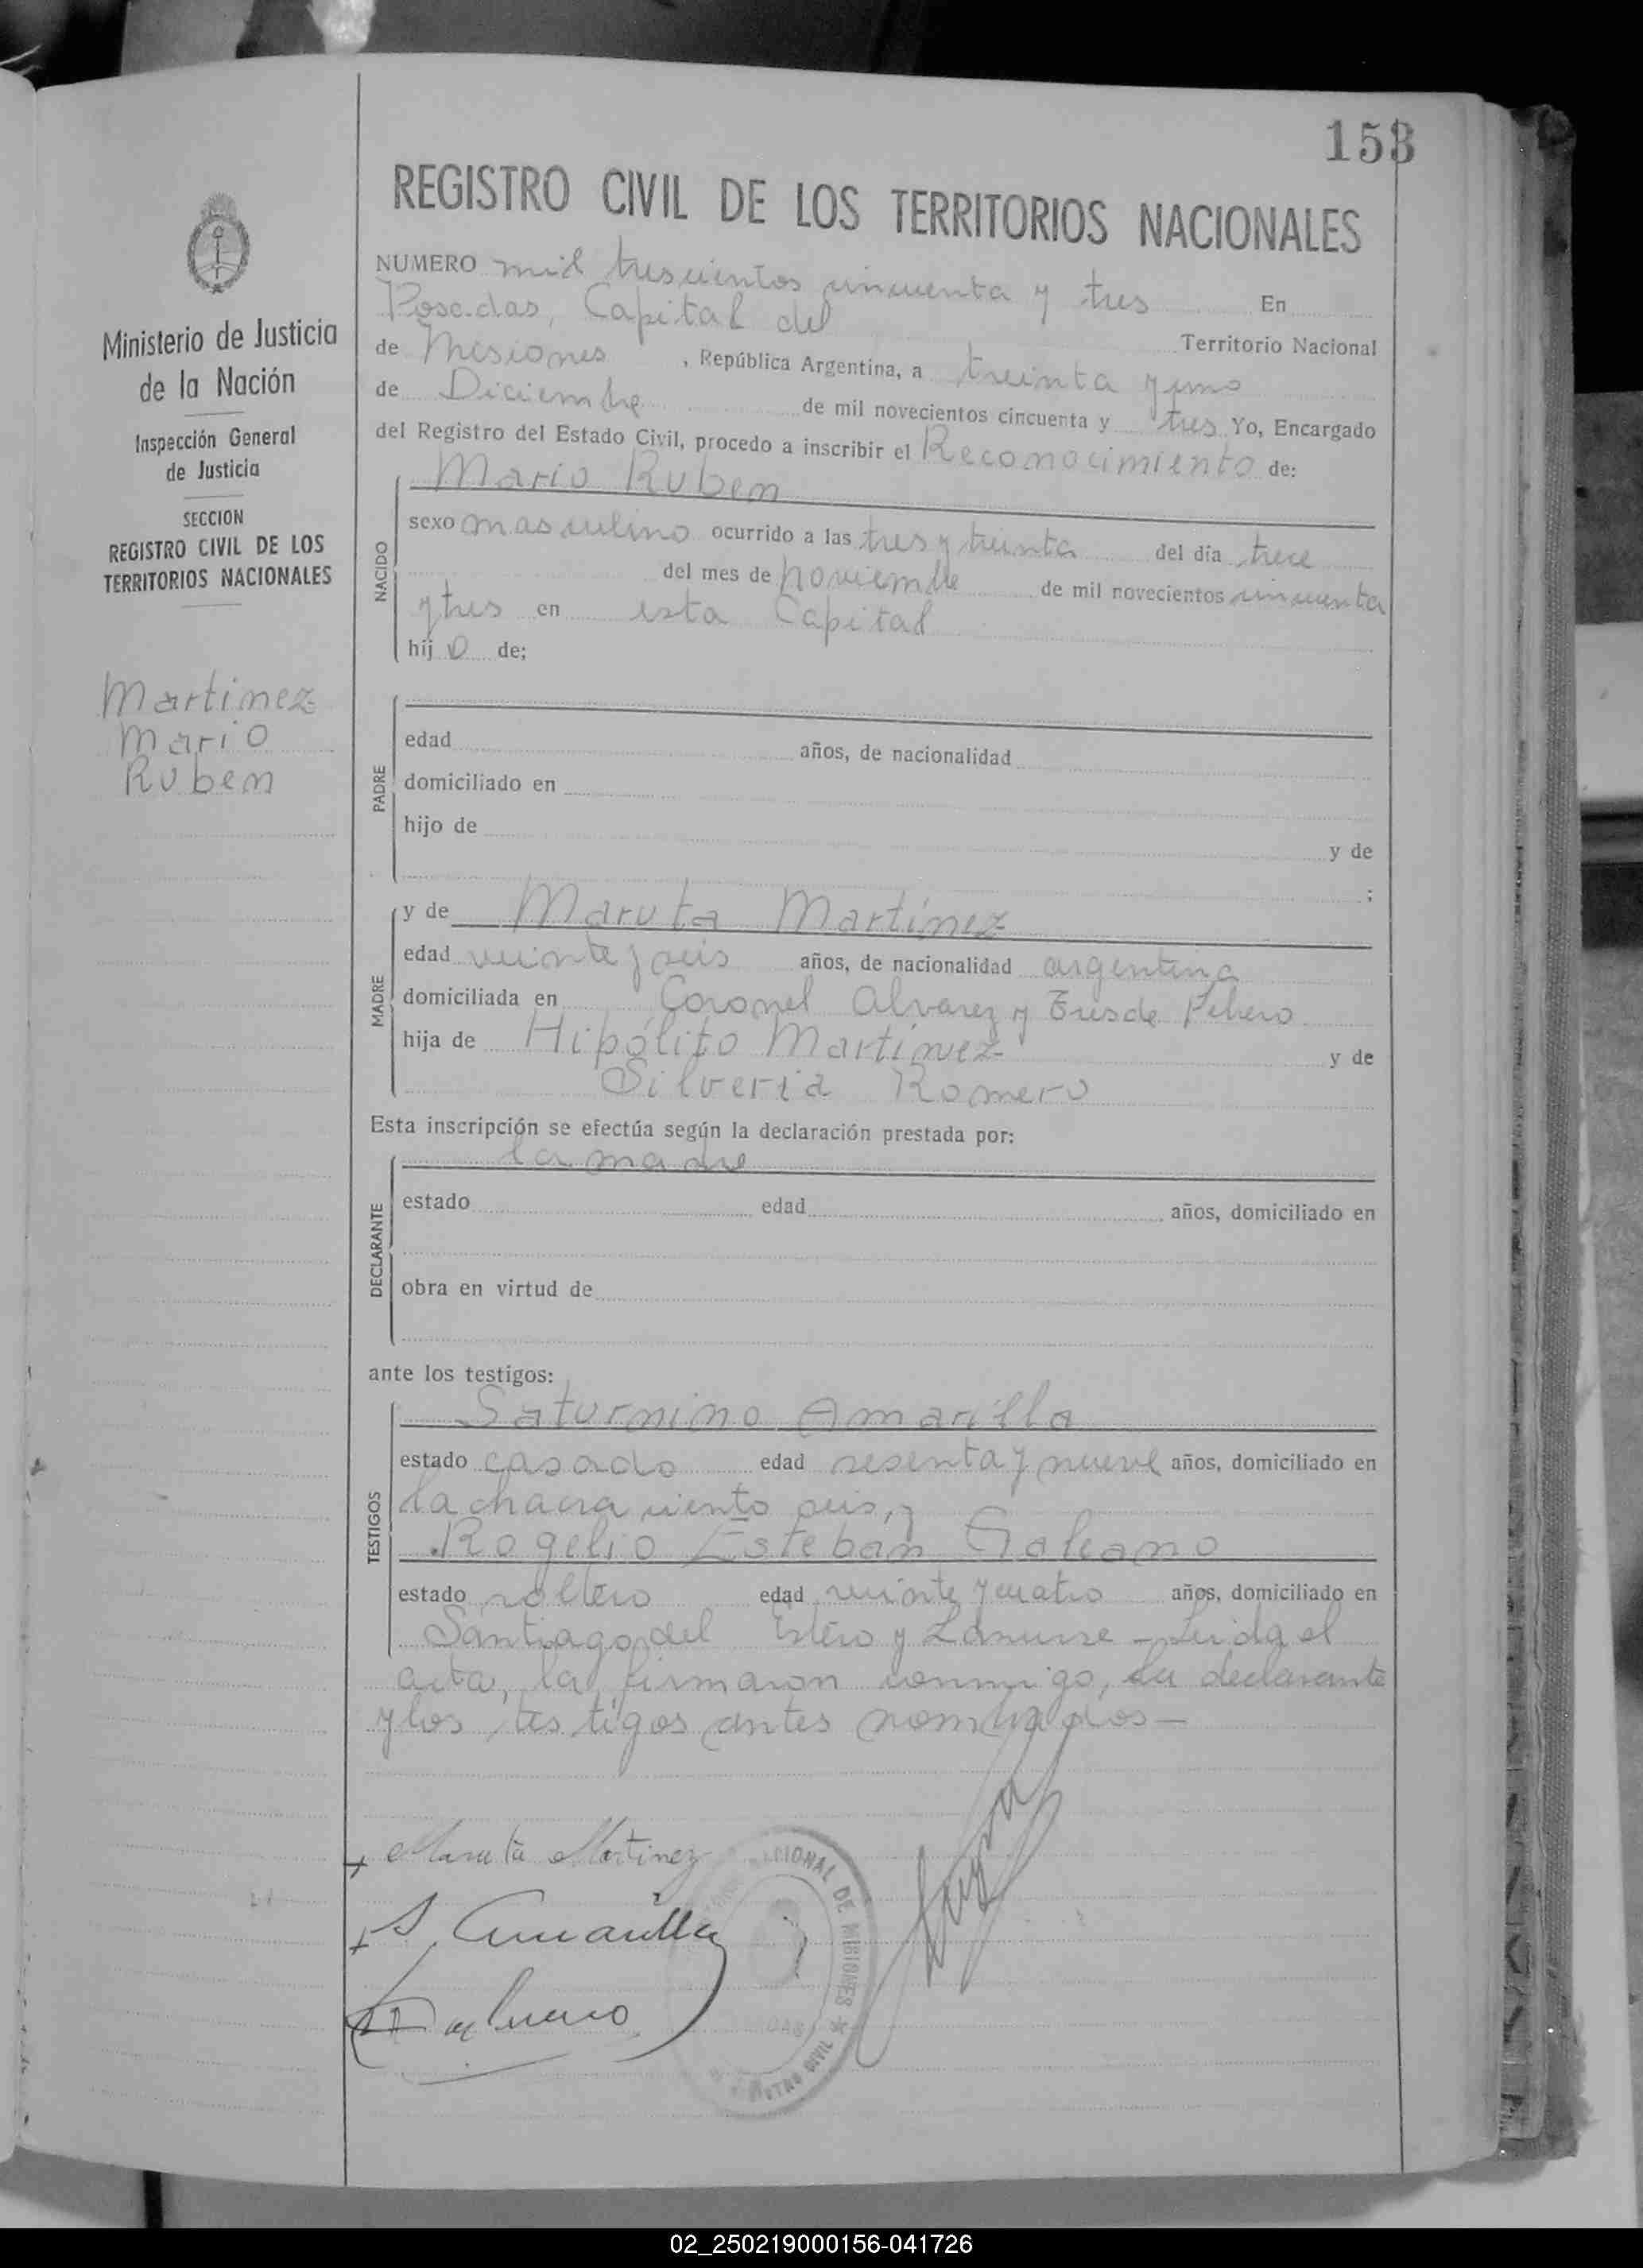 153
REGISTRO CIVIL DE LOS TERRITORIOS NACIONALES
Ministerio de Justicia
de la Nación
Inspección General
de Justicia
SECCION
REGISTRO CIVIL DE LOS
TERRITORIOS NACIONALES
Martinez
Mario
Ruben
NUMERO mil trescientos cincuenta y tres En
Posadas, Capital del Territorio Nacional
de Misiones, República Argentina, a treinta y uno
de Diciembre de mil novecientos cincuenta y tres Yo, Encargado
del Registro del Estado Civil, procedo a inscribir el Reconocimiento de:
Mario Ruben
NACIDO
sexo masculino ocurrido a las tres y treinta del día trece
del mes de noviembre de mil novecientos cincuenta
y tres en esta Capital
hijo de;
PADRE
edad años, de nacionalidad
domiciliado en
hijo de y de
;
MADRE
y de Maruta Martínez
edad veinte y seis años, de nacionalidad argentina
domiciliada en Coronel Alvarez y Tres de Febrero
hija de Hipólito Martínez y de
Silveria Romero
Esta inscripción se efectúa según la declaración prestada por:
la madre
DECLARANTE
estado edad años, domiciliado en
obra en virtud de
ante los testigos:
TESTIGOS
Saturnino Amarilla
estado casado edad sesenta y nueve años, domiciliado en
la chacra ciento seis, y
Rogelio Esteban Galeano
estado soltero edad veinte y cuatro años, domiciliado en
Santiago del Estero y Lanusse - Leida el
acta, la firmaron conmigo, la declarante
y los testigos antes nombrados -
Maruta Martinez
S. Amarilla
NACIONAL DE MISIONES * CIVIL
02_250219000156-041726